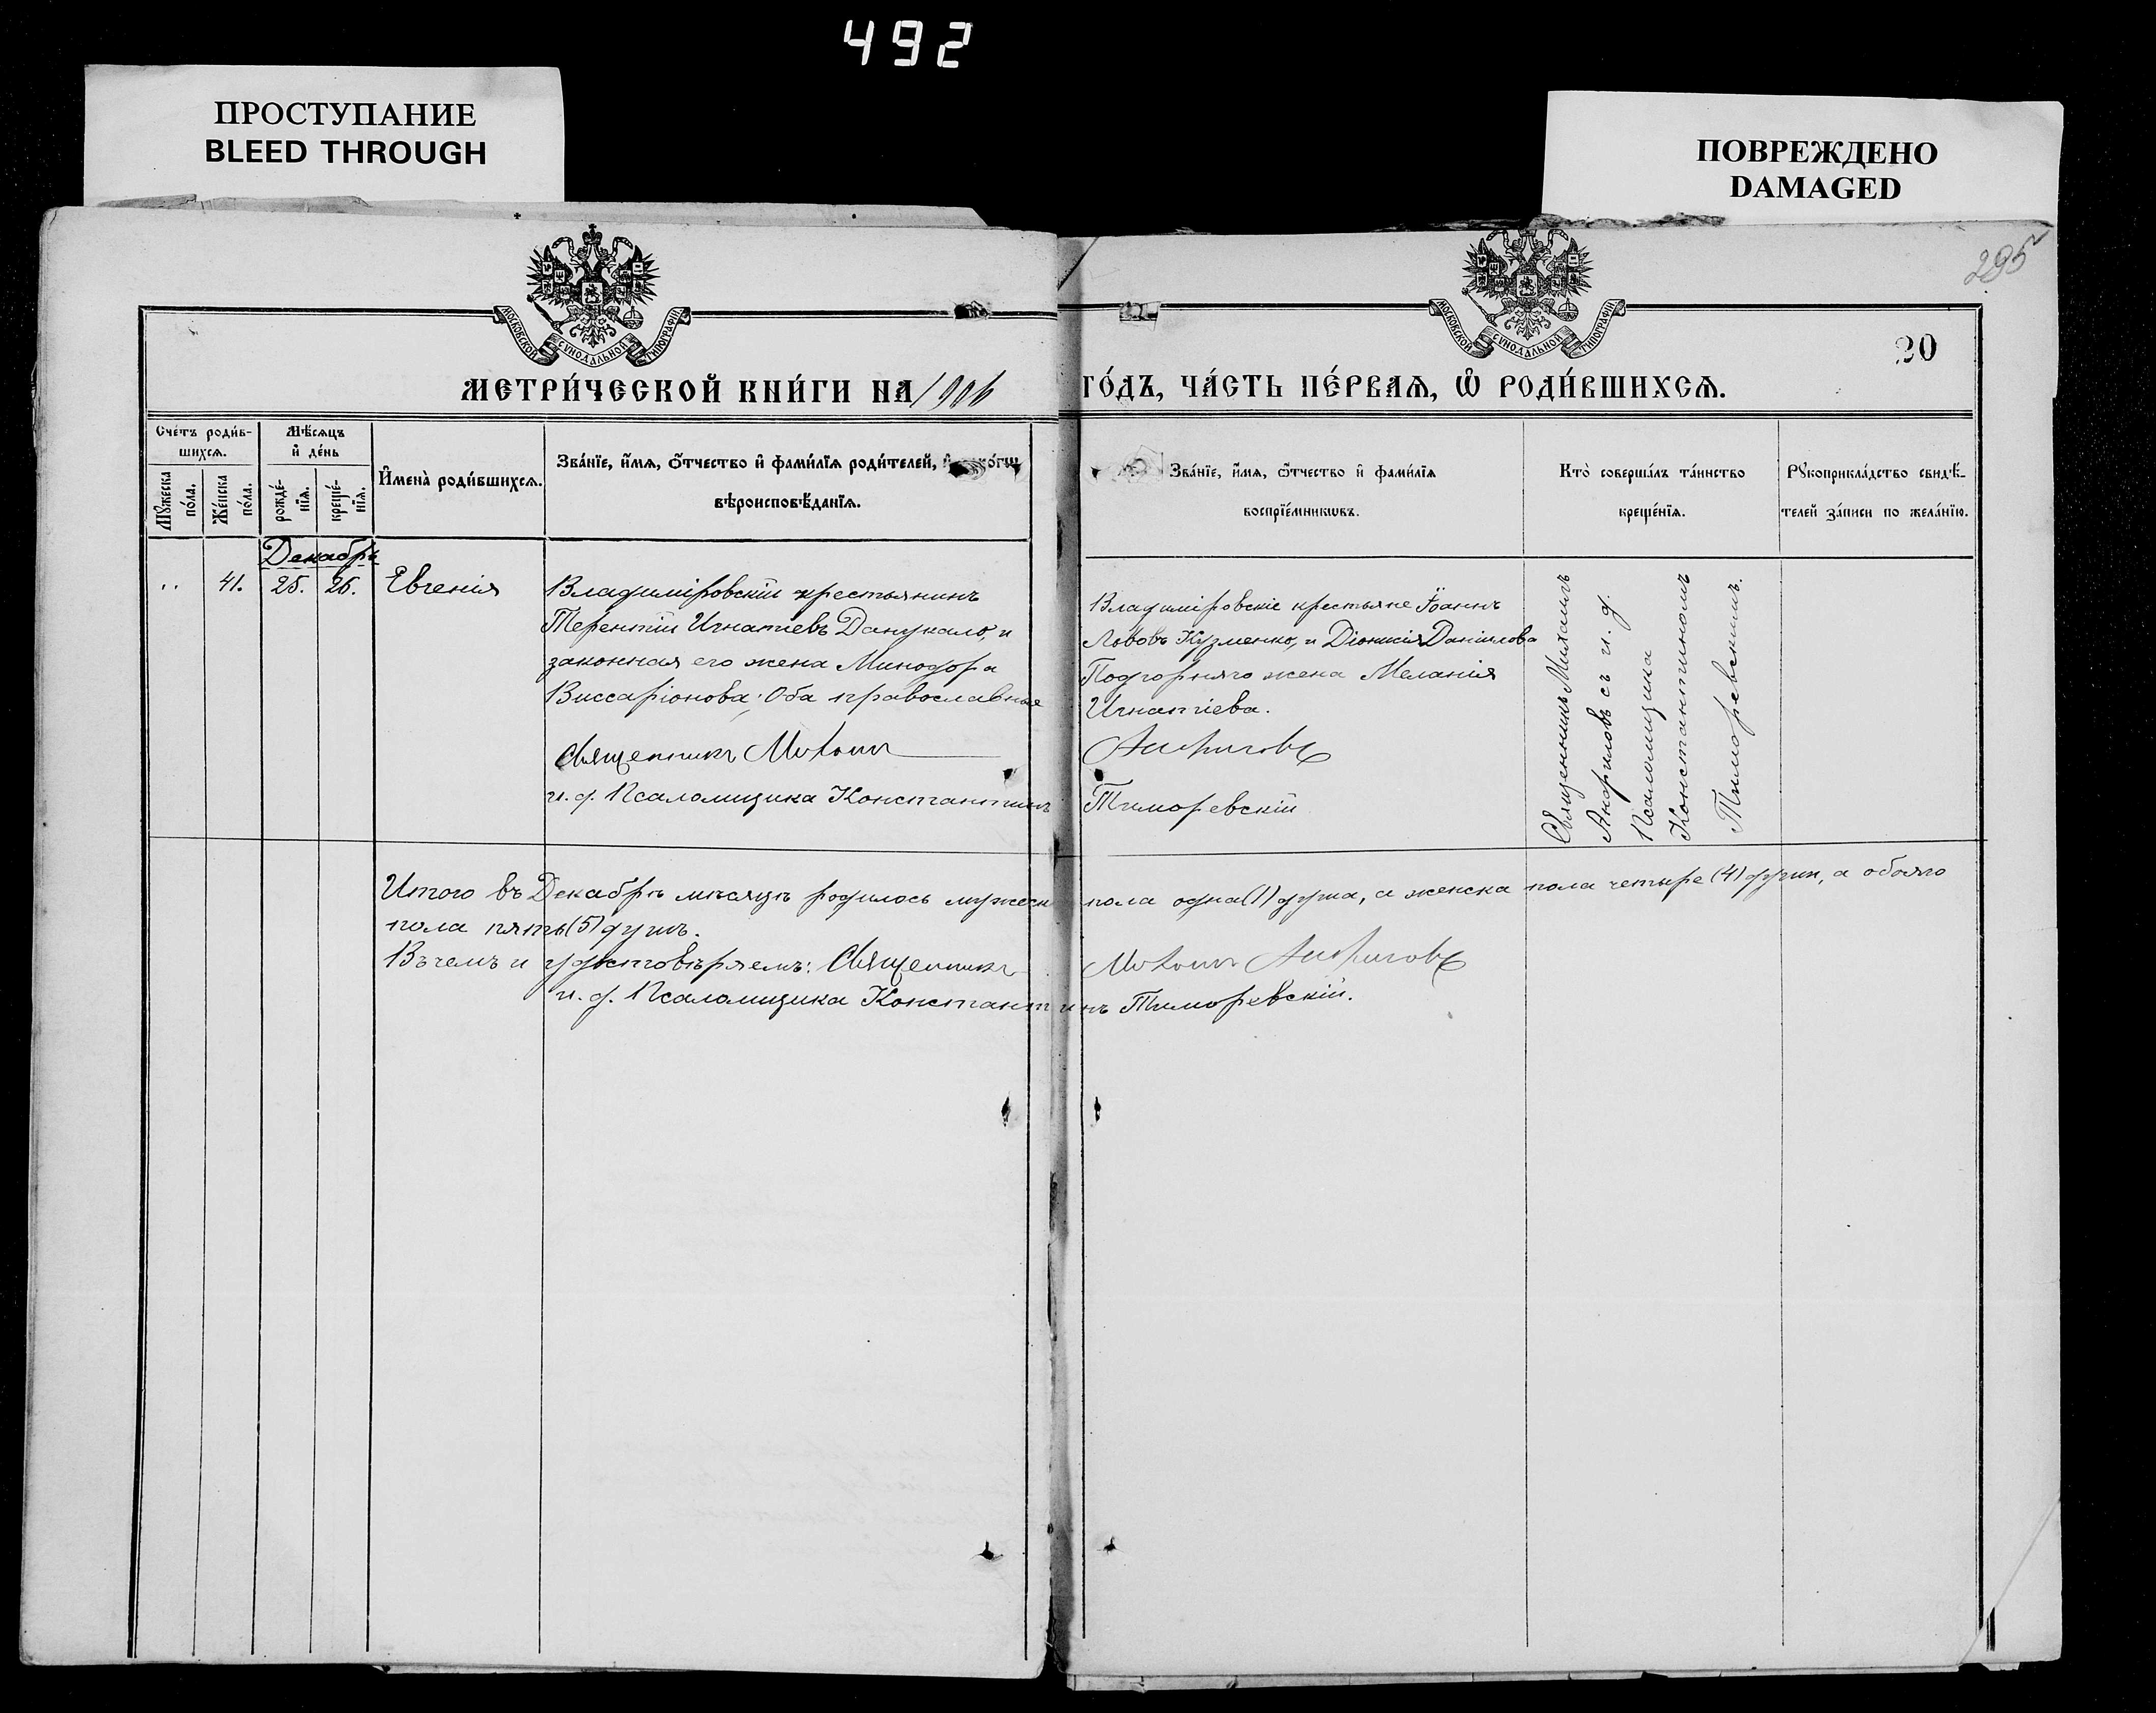 492
ПРОСТУПАНИЕ
BLEED THROUGH
ПОВРЕЖДЕНО
DAMAGED
295
20
МОСКОВСКОЙ СѴНОДАЛЬНОЙ ТИПОГРАФІИ
МОСКОВСКОЙ СѴНОДАЛЬНОЙ ТИПОГРАФІИ
МЕТРИ́ЧЕСКОЙ КНИ́ГИ НА 1906
ГО́ДЪ, ЧА́СТЬ ПЕ́РВАѦ, Ѡ҆ РОДИ́ВШИХСѦ.
Сче́тъ роди́в-
шихсѧ.
Мѣ́сѧцъ
и҆ де́нь
Мꙋ́жеска
по́ла.
Же́нска
по́ла.
рожде́-
нїѧ.
креще́-
нїѧ.
И҆мена̀ роди́вшихсѧ.
Зва́нїе, и҆́мѧ, ѻ҆́тчество и҆ фами́лїѧ роди́телей,
вѣроисповѣ́данїѧ.
Зва́нїе, и҆́мѧ, ѻ҆́тчество и҆ фами́лїѧ
воспрїе́мникѡвъ.
Кто̀ соверша́лъ та́инство
креще́нїѧ.
Рꙋкоприкла́дство свидѣ́-
телей за́писи по жела́нїю.
Декабрь
" 41. 25. 26. Евгенія
Владиміровскій крестьянинъ
Терентій Игнатіевъ Данукало, и
законная его жена Минодора
Виссаріонова; Оба православные
Священникъ Михаилъ
и. д. Псаломщика Константинъ
Владиміровскіе крестьяне Іоаннъ
Львовъ Кузменко, и Діонисія Даніилова
Подгорняго жена Меланія
Игнатіева.
Анфиловъ
Тиморевскій
Священникъ Михаилъ
Анфиловъ съ и. д.
Псаломщика
Константиномъ
Тиморевскимъ.
Итого въ Декабрѣ мѣсяцѣ родилось мужеска пола одна (1) душа, а женска пола четыре (4) души, а обоего
пола пять (5) душъ.
Въ чемъ и удостовѣряемъ: Священникъ Михаилъ Анфиловъ
и. д. Псаломщика Константинъ Тиморевскій.